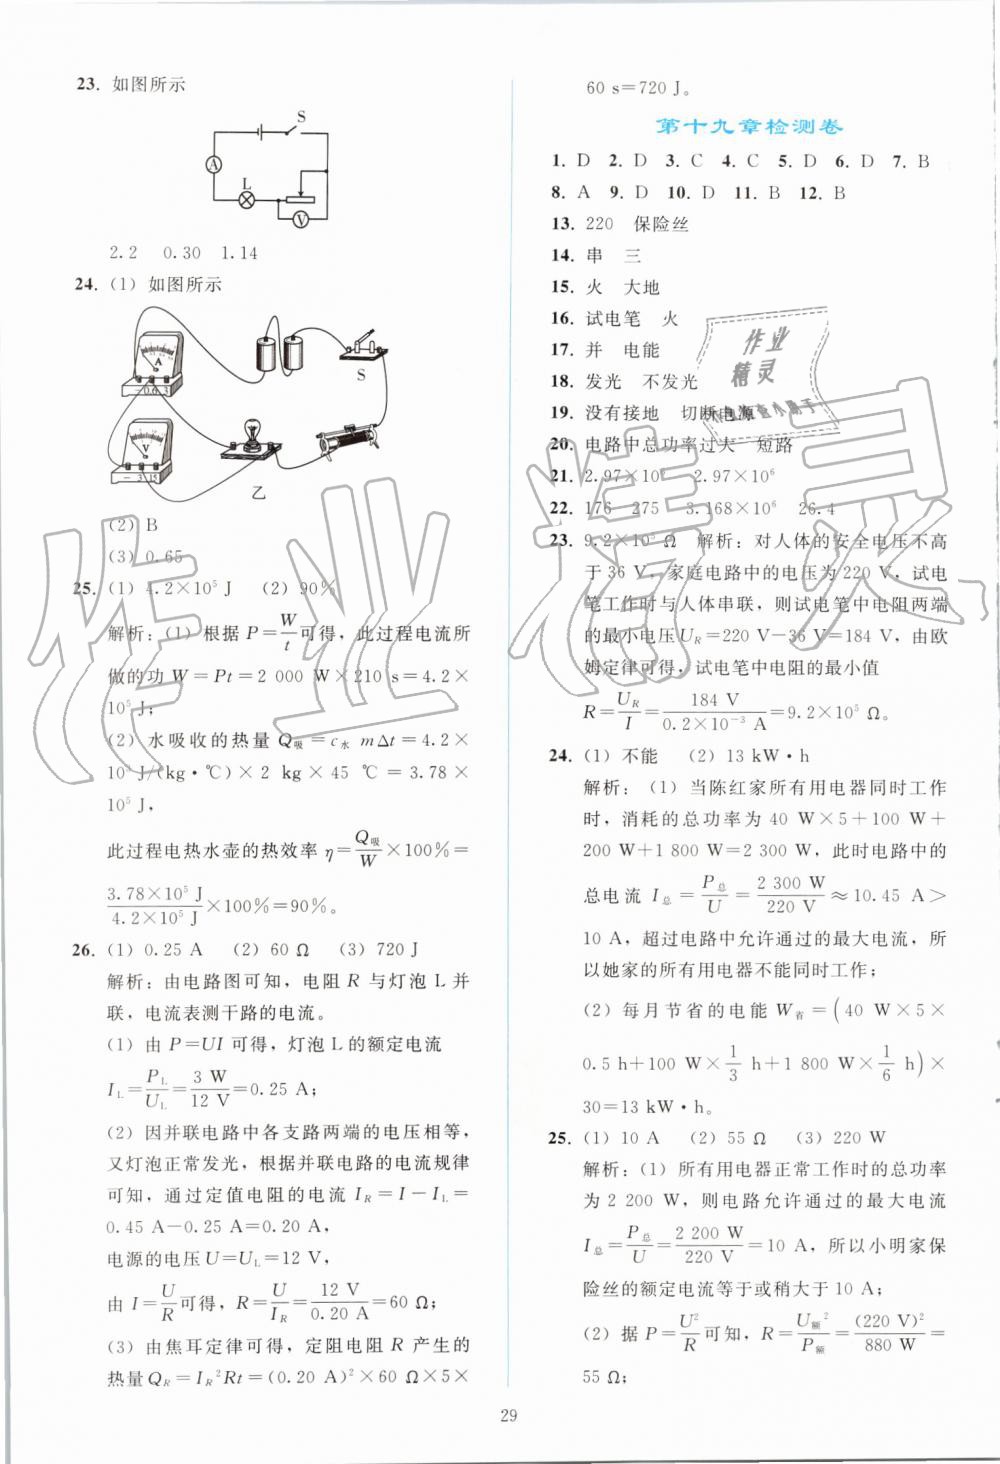 23. 如图所示
S
A
L
V
2.2 0.30 1.14
24. (1) 如图所示
A
－ 0.6 3
S
V
－ 3 15
乙
(2) B
(3) 0.65
25. (1) 4.2×10⁵ J (2) 90%
解析:(1) 根据 P=W/t可得，此过程电流所
做的功 W=Pt=2 000 W×210 s=4.2×
10⁵ J;
(2) 水吸收的热量 Q吸=c水 mΔt=4.2×
10³ J/(kg·℃)×2 kg×45 ℃=3.78×
10⁵ J，
此过程电热水壶的热效率 η=Q吸/W×100%=
3.78×10⁵ J/4.2×10⁵ J×100%=90%。
26. (1) 0.25 A (2) 60 Ω (3) 720 J
解析:由电路图可知，电阻 R 与灯泡 L 并
联，电流表测干路的电流。
(1) 由 P=UI 可得，灯泡 L 的额定电流
I_L=P_L/U_L=3 W/12 V=0.25 A;
(2) 因并联电路中各支路两端的电压相等，
又灯泡正常发光，根据并联电路的电流规律
可知，通过定值电阻的电流 I_R=I－I_L=
0.45 A－0.25 A=0.20 A，
电源的电压 U=U_L=12 V，
由 I=U/R可得，R=U/I_R=12 V/0.20 A=60 Ω;
(3) 由焦耳定律可得，定阻电阻 R 产生的
热量 Q_R=I_R²Rt=(0.20 A)²×60 Ω×5×
60 s=720 J。
第十九章检测卷
1. D 2. D 3. C 4. C 5. D 6. D 7. B
8. A 9. D 10. D 11. B 12. B
13. 220 保险丝
14. 串 三
15. 火 大地
16. 试电笔 火
17. 并 电能
18. 发光 不发光
19. 没有接地 切断电源
20. 电路中总功率过大 短路
21. 2.97×10⁶ 2.97×10⁶
22. 176 275 3.168×10⁶ 26.4
23. 9.2×10⁵ Ω 解析:对人体的安全电压不高
于 36 V，家庭电路中的电压为 220 V，试电
笔工作时与人体串联，则试电笔中电阻两端
的最小电压 U_R=220 V－36 V=184 V，由欧
姆定律可得，试电笔中电阻的最小值
R=U_R/I=184 V/0.2×10⁻³ A=9.2×10⁵ Ω。
24. (1) 不能 (2) 13 kW·h
解析:(1) 当陈红家所有用电器同时工作
时，消耗的总功率为 40 W×5+100 W+
200 W+1 800 W=2 300 W，此时电路中的
总电流 I总=P总/U=2 300 W/220 V≈10.45 A>
10 A，超过电路中允许通过的最大电流，所
以她家的所有用电器不能同时工作;
(2) 每月节省的电能 W省=(40 W×5×
0.5 h+100 W×1/3 h+1 800 W×1/6 h)×
30=13 kW·h。
25. (1) 10 A (2) 55 Ω (3) 220 W
解析:(1) 所有用电器正常工作时的总功率
为 2 200 W，则电路允许通过的最大电流
I总=P总/U=2 200 W/220 V=10 A，所以小明家保
险丝的额定电流等于或稍大于 10 A;
(2) 据 P=U²/R可知，R=U额²/P额=(220 V)²/880 W=
55 Ω;
29
作业
精灵
作业精灵